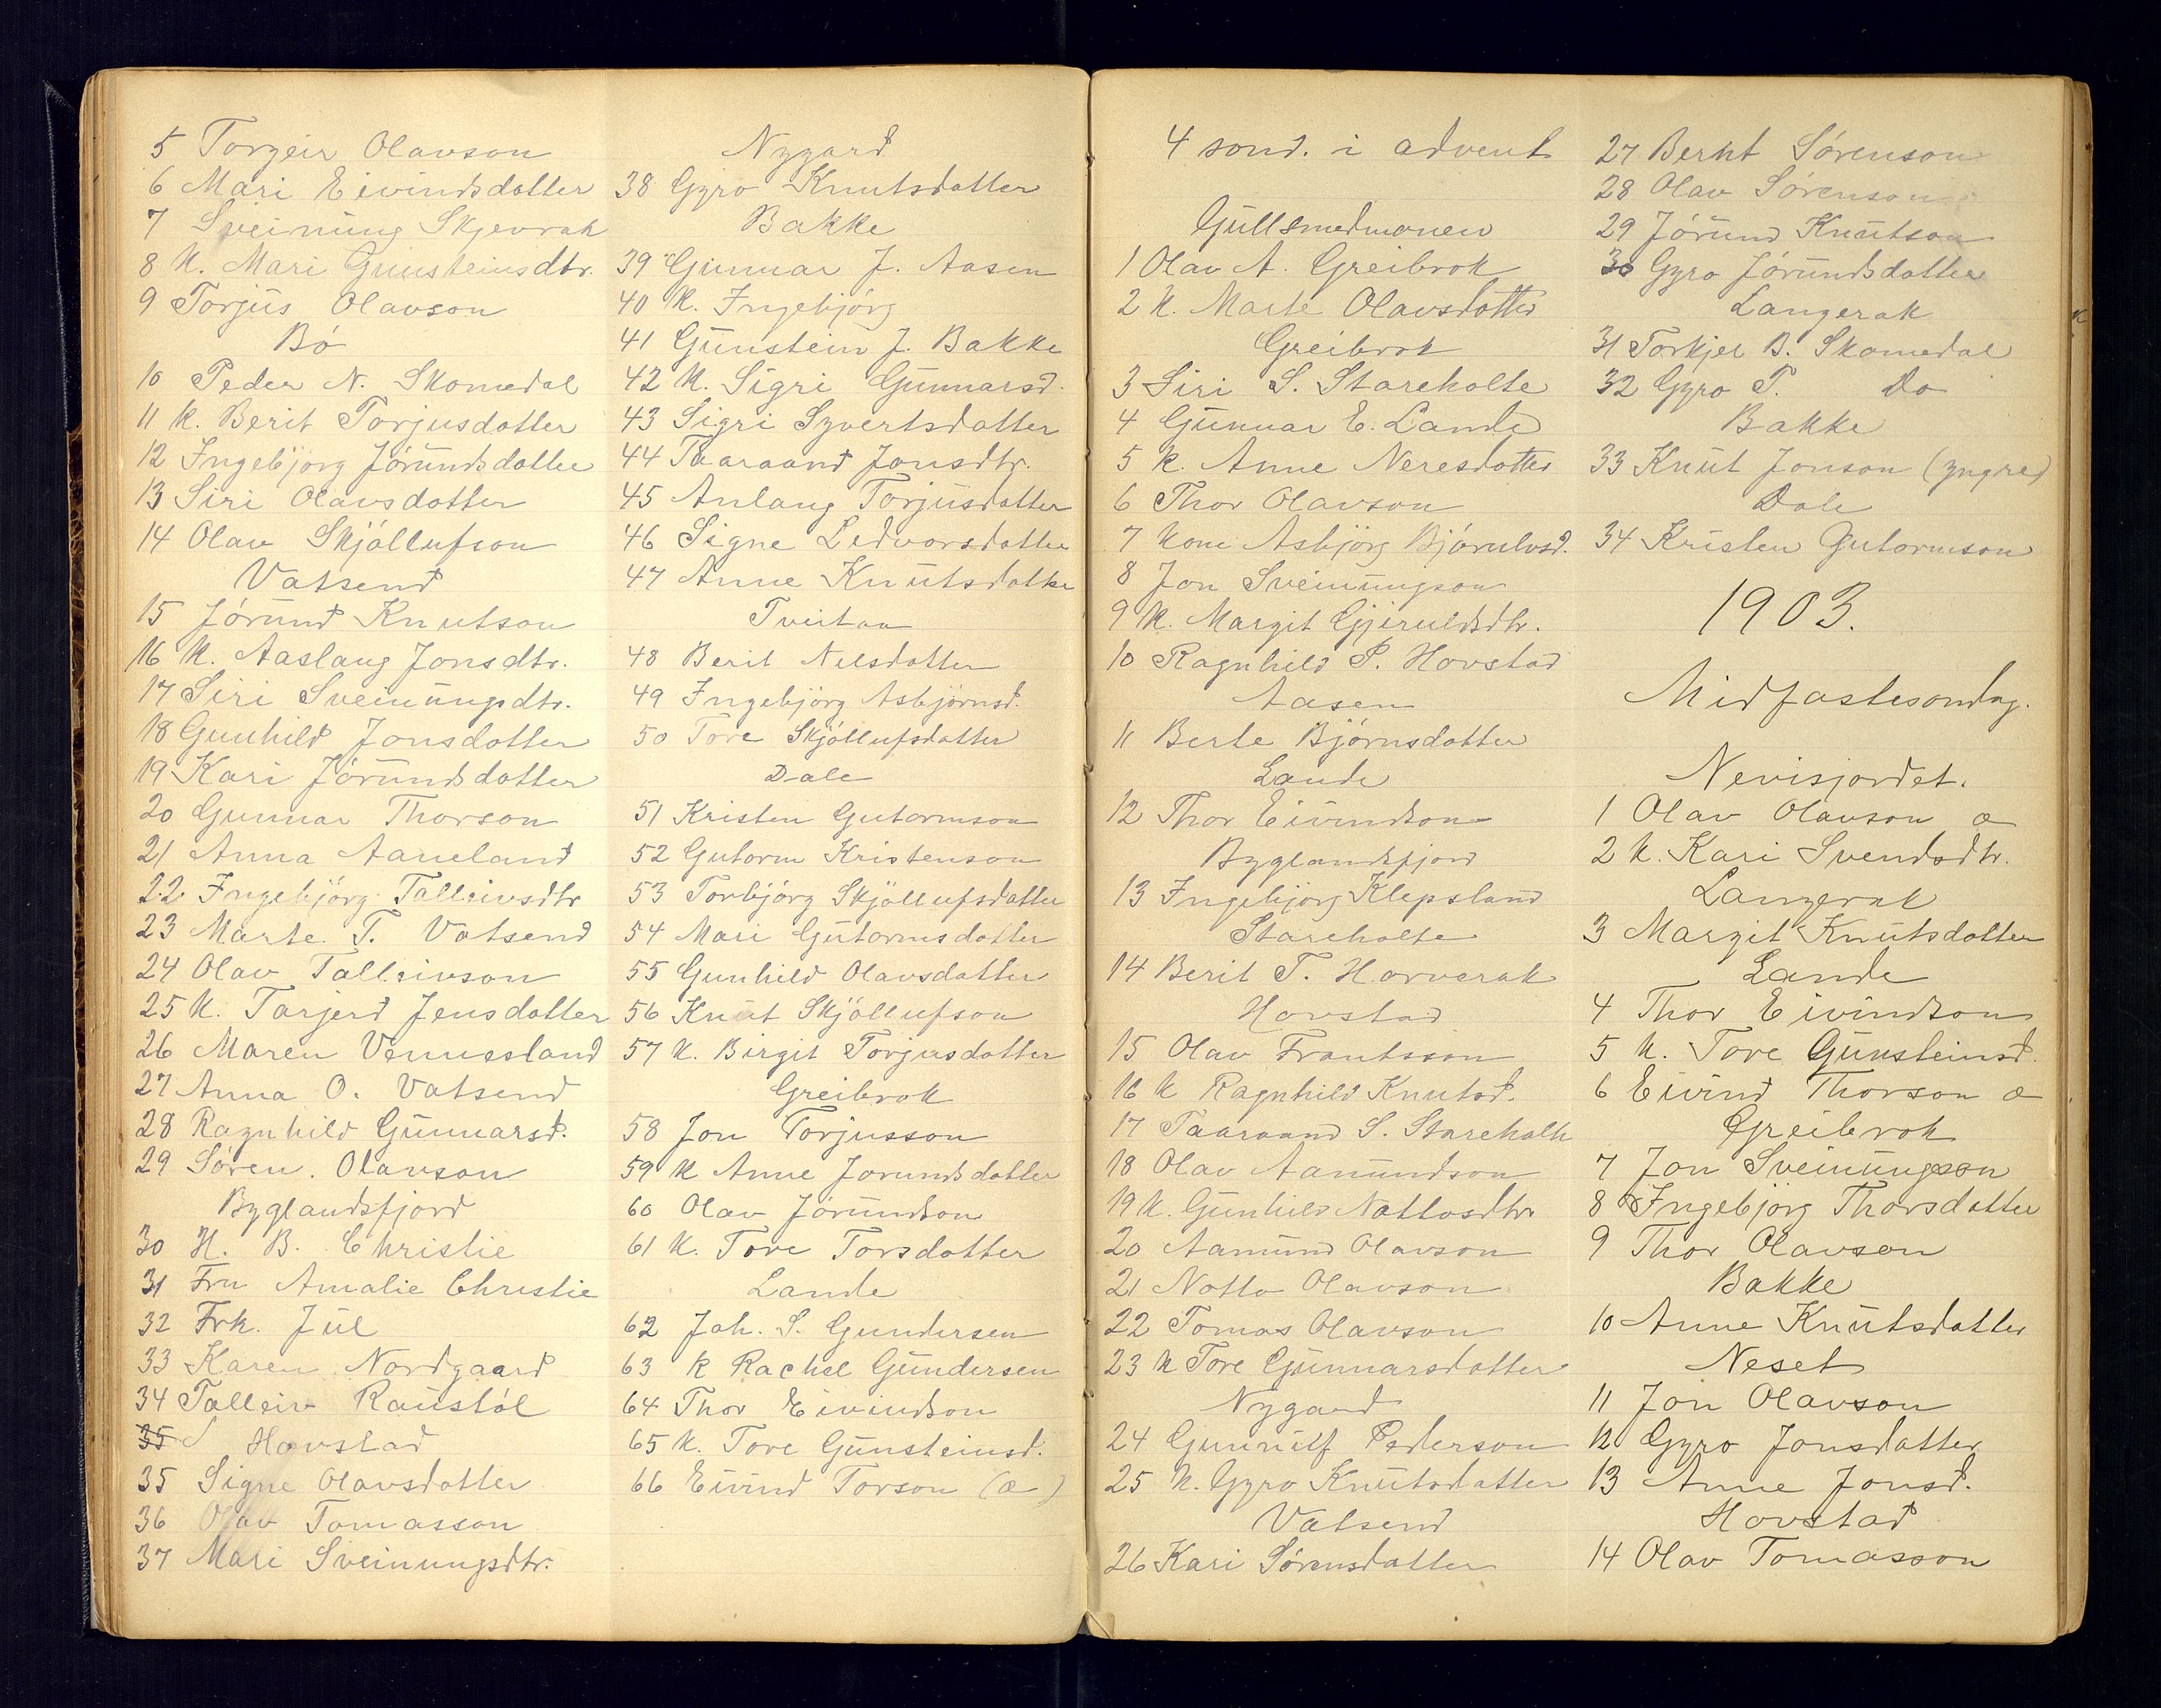 5 Torgeir Olavson
6 Mari Eivindsdotter
7 Sveinung Skjevrak
8 K. Mari Gunsteinsdtr.
9 Torjus Olavson
Bó
10 Peder N. Skomedal
11 K. Berit Torjusdotter
12 Ingebjórg Jórundsdotter
13 Siri Olavsdotter
14 Olav Skjóllufson
Vatsend
15 Jórund Knutson
16 K. Aaslaug Jonsdtr.
17 Siri Sveinungsdtr.
18 Gunhild Jonsdotter
19 Kari Jórundsdotter
20 Gunnar Thorson
21 Anna Aaneland
22 Ingebjórg Talleivsdtr
23 Marte T. Vatsend
24 Olav Talleivson
25 K. Tarjerd Jensdotter
26 Maren Vennesland
27 Anna O. Vatsend
28 Ragnhild Gunnarsd.
29 Sóren Olavson
Byglandsfjord
30 H. B. Christie
31 Fru Amalie Christie
32 Frk. Jul
33 Karen Nordgaard
34 Talleiv Raustól
35 Hovstad
35 Signe Olavsdotter
36 Olav Tomasson
37 Mari Sveinungsdtr.
Nygard
38 Gyro Knutsdotter
Bakke
39 Gunnar J. Aasen
40 K. Ingebjórg
41 Gunstein J. Bakke
42 K. Sigri Gunnarsd.
43 Sigri Syvertsdatter
44 Taaraand Jonsdtr.
45 Anlaug Torjusdatter
46 Signe Ledvorsdatter
47 Anne Knutsdatter
Tveitaa
48 Berit Nelsdotter
49 Ingebjórg Asbjórnsd.
50 Tore Skjóllufsdatter
Dale
51 Kristen Gutormson
52 Gutorm Kristenson
53 Torbjórg Skjóllufsdatter
54 Mari Gutormsdotter
55 Gunhild Olavsdatter
56 Knut Skjóllufson
57 K. Birgit Torjusdotter
Greibrok
58 Jon Torjusson
59 K Anne Jorundsdotter
60 Olav Jórundson
61 K. Tore Torsdotter
Lande
62 Joh. S. Gundersen
63 K Rachel Gundersen
64 Thor Eivindson
65 K. Tore Gunsteinsd.
66 Eivind Torson (æ)
4 sond. i advent
Gullsmedmonen
1 Olav A. Greibrok
2 K. Marte Olavsdotter
Greibrok
3 Siri S. Stareholte
4 Gunnar E. Lande
5 K. Anne Neresdotter
6 Thor Olavson
7 Kone Asbjórg Bjórulvsd.
8 Jon Sveinungson
9 K. Margit Gjeruldsdtr.
10 Ragnhild P. Hovstad
Aasen
11 Berte Bjórnsdotter
Lande
12 Thor Eivindson
Byglandsfjord
13 Ingebjórg Klepsland
Stareholte
14 Berit T. Horverak
Hovstad
15 Olav Frantsson
16 K Ragnhild Knutsd.
17 Taaraand S. Stareholt
18 Olav Aamundson
19 K. Gunhild Nottosdtr
20 Aamund Olavson
21 Notto Olavson
22 Tomas Olavson
23 K Tore Gunnarsdotter
Nygard
24 Gunnulf Pederson
25 K. Gyro Knutsdatter
Vatsend
26 Kari Sórensdatter
27 Bernt Sórenson
28 Olav Sórenson
29 Jórund Knutson
30 Gyro Jórundsdotter
Langerak
31 Torkjel B. Skomedal
32 Gyro T. Do
Bakke
33 Knut Jonson (yngre)
Dale
34 Kristen Gutormson
1903.
Midfastesondag.
Nevisjordet.
1 Olav Olavson æ
2 K. Kari Svendsdtr.
Langerak
3 Margit Knutsdotter
Lande
4 Thor Eivindson
5 K. Tore Gunsteinsd.
6 Eivind Thorson æ
Greibrok
7 Jon Sveinungson
8 Ingebjórg Thorsdotter
9 Thor Olavson
Bakke
10 Anne Knutsdatter
Neset
11 Jon Olavson
12 Gyro Jonsdatter
13 Anne Jonsd.
Hovstad
14 Olav Tomasson